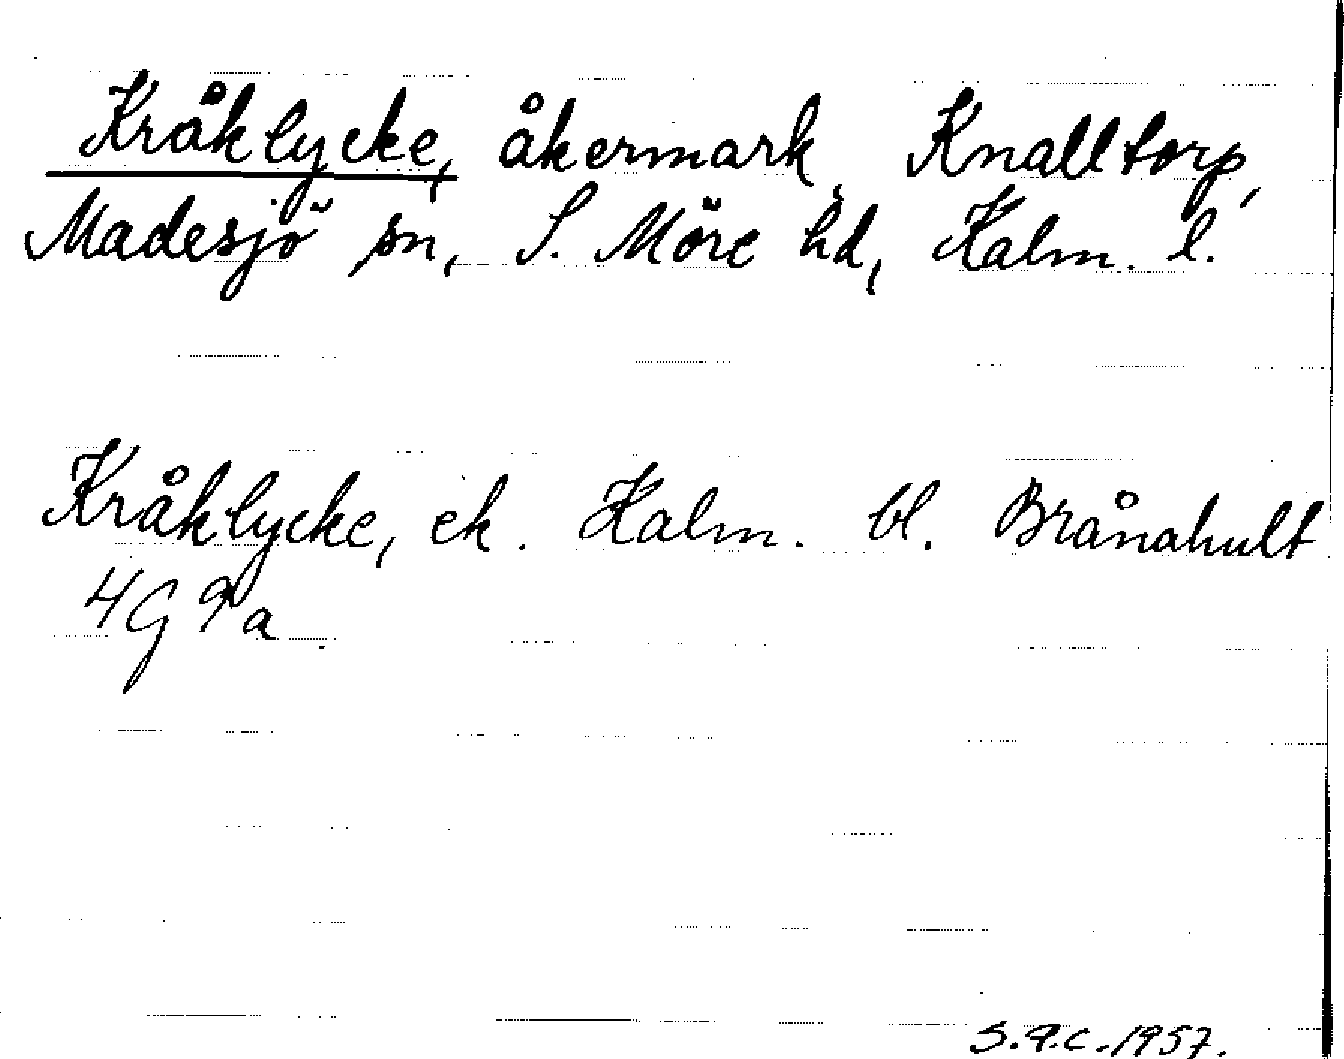 Kråklycke, åkermark, Knalltorp,
Madesjö sn, S. Möre hd, Kalm. l.
Kråklycke, ek. Kalm. bl. Brånahult
4G 9a
S.A.C. 1957.